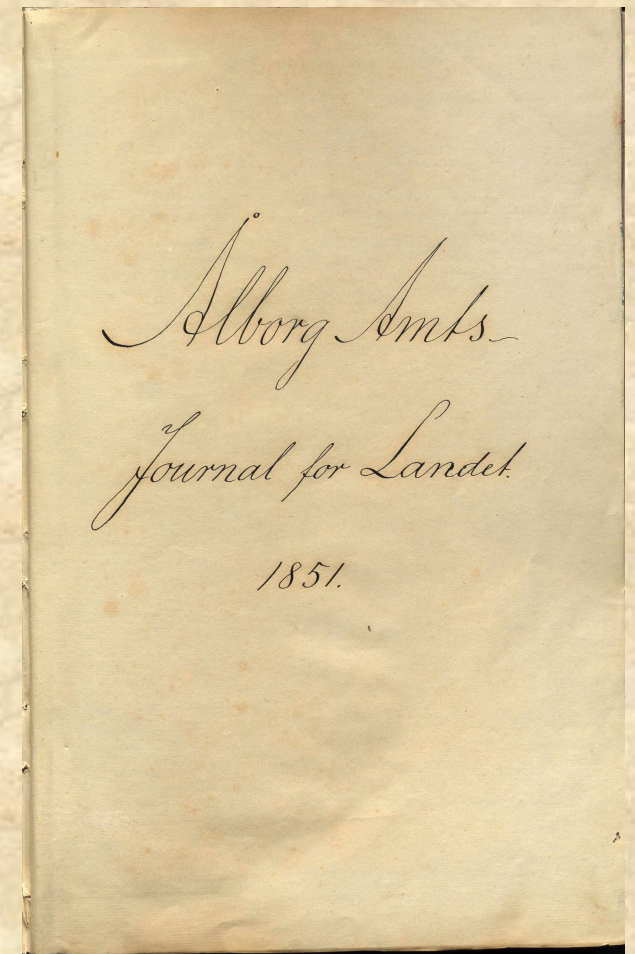 Ålborg Amts
Journal for Landet.
1851.